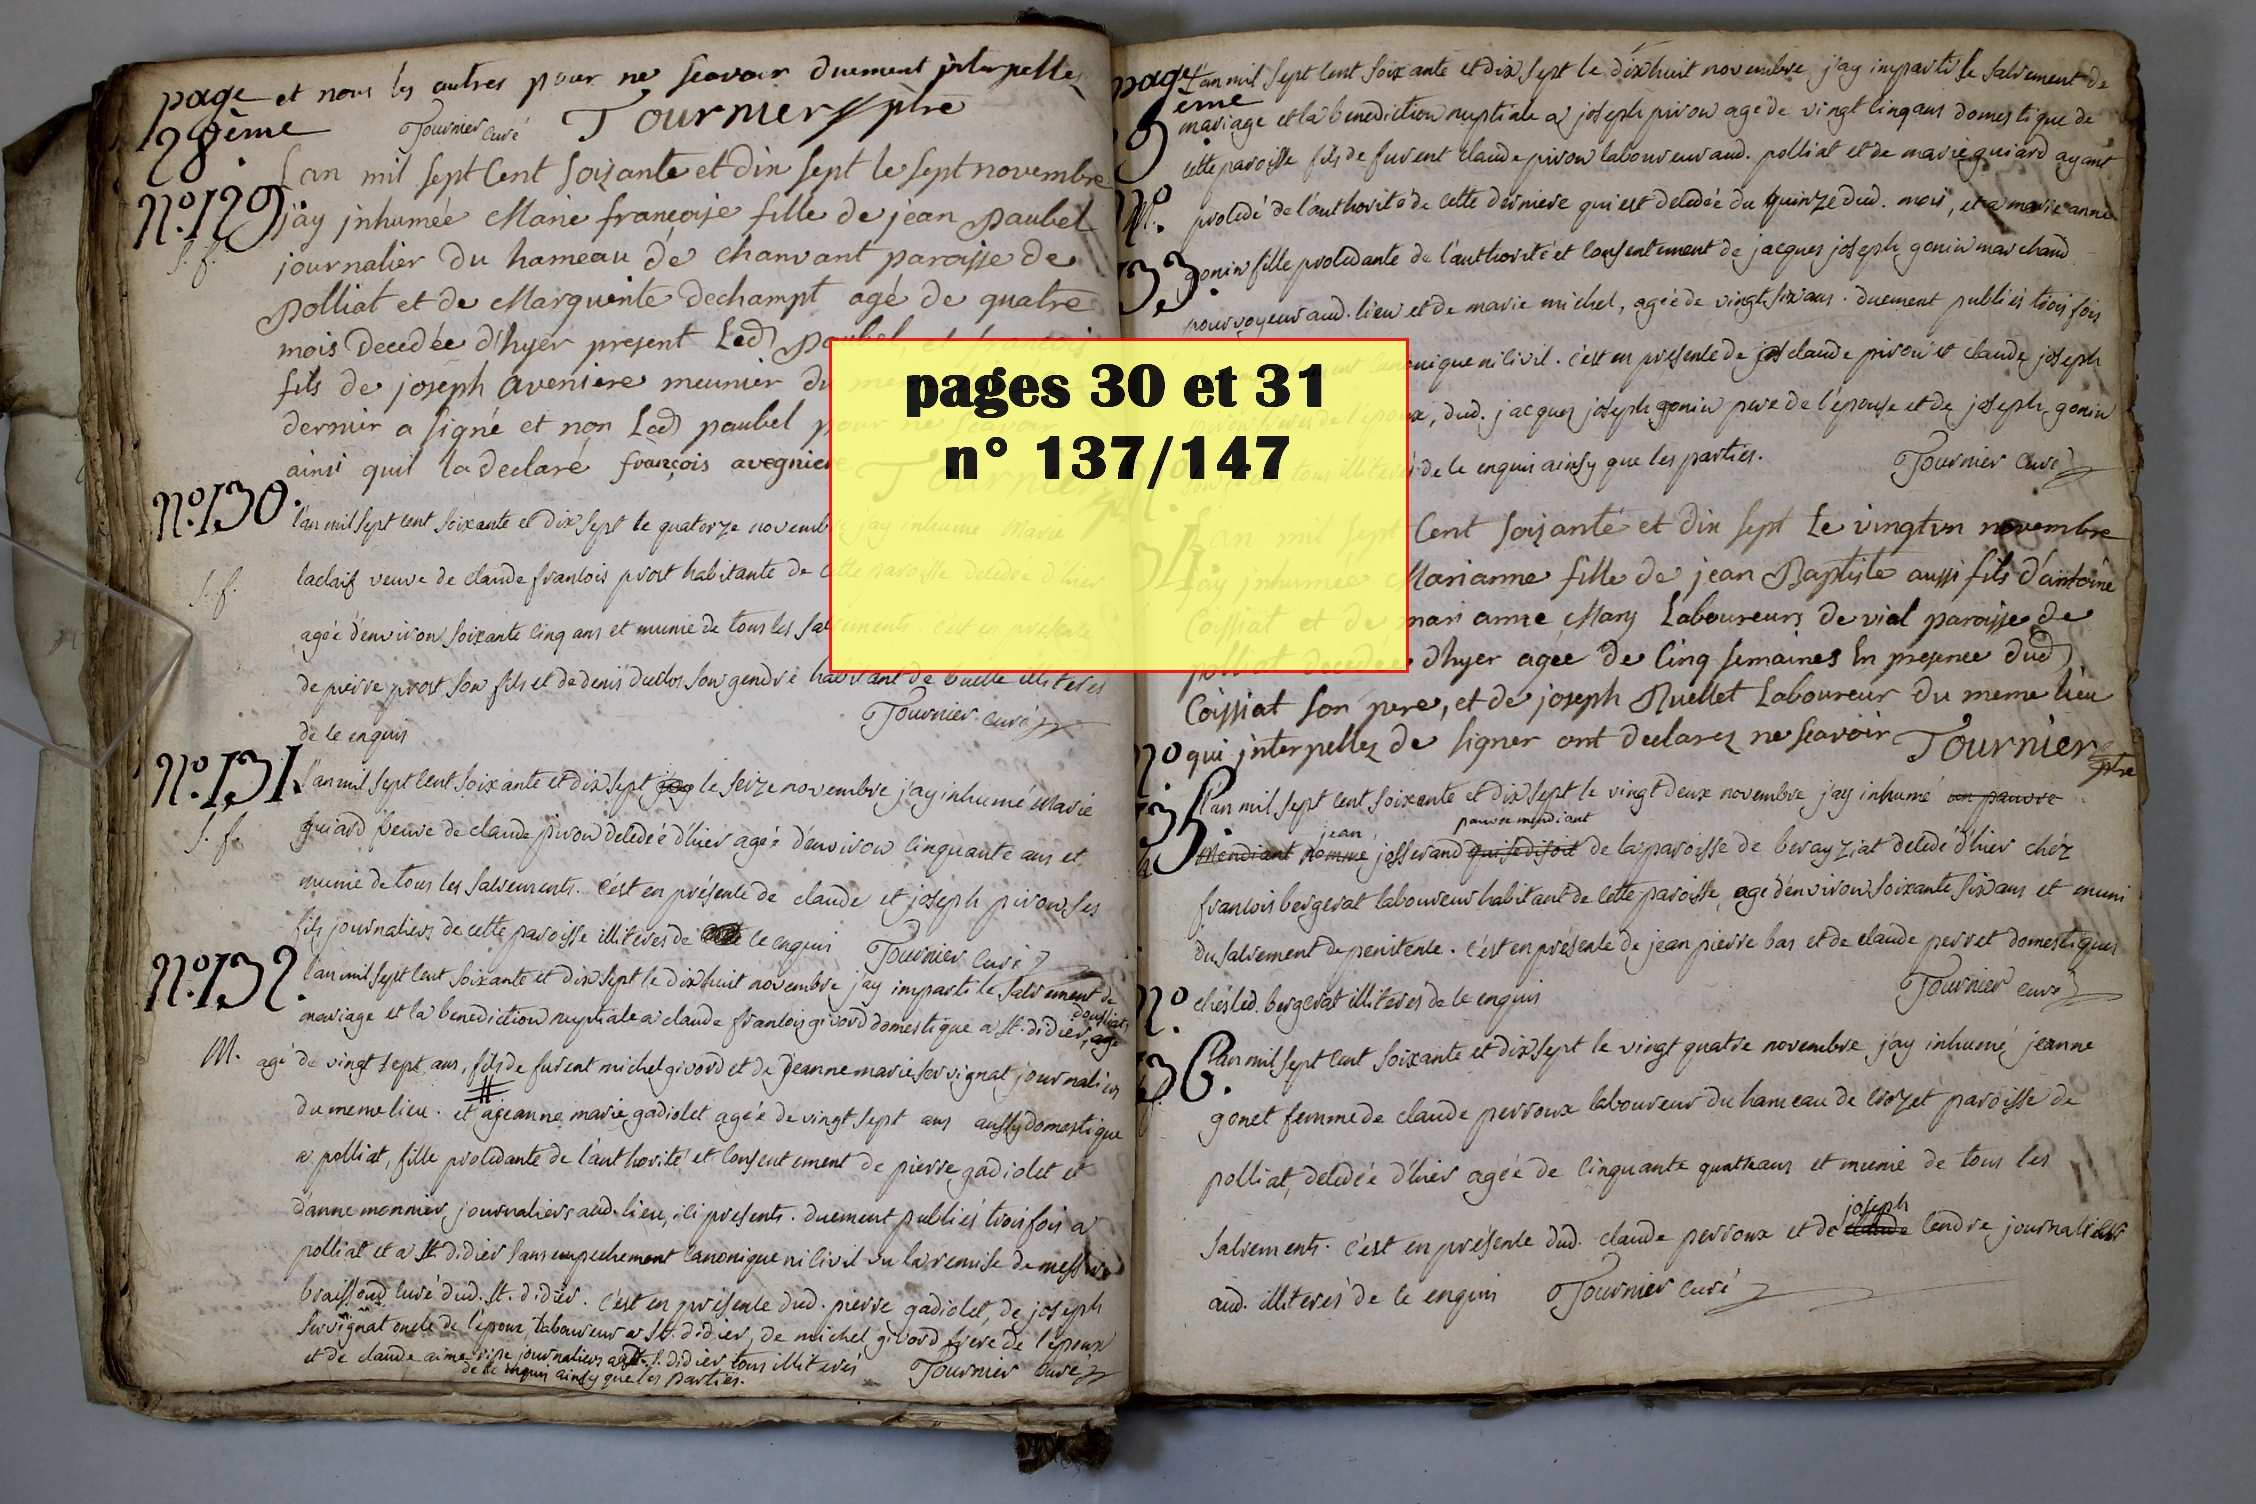 et nous les autres pour ne scavoir duement interpelles
page
28ème
Tournier curé Tournier ptre
L'an mil sept cent soixante et dix sept le sept novembre
N°.129
j'ay inhumée Marie françoise fille de jean paubel
s. f.
journalier du hameau de charvant paroisse de
polliat et de Marguerite dechampt agé de quatre
mois decedée d'hyer present Led
fils de joseph aveniere meunier du
dernier a signé et non Led paubel pour ne scavoir
ainsi quil la declaré françois avegniere
N°.130.
l'an mil sept cent soixante et dix sept le quatorze novembre j'ay inhumé Marie
s. f.
laclaif veuve de claude francois prost habitante de cette paroisse decedee d'hier
agée d'environ soixante cinq ans et munie de tous les sacrements c'est en presence
de pierre prost son fils et de denis duclos son gendre habitant de buelle illiteres
de ce enquis
Tournier curé
N°.131.
l'an mil sept cent soixante et dix sept le seize novembre j'ay inhumé Marie
s. f.
guiard veuve de claude pivon decedeé d'hier agée d'environ cinquante ans et
munie de tous les sacrements. c'est en présence de claude et joseph pivon ses
fils journaliers de cette paroisse illiteres de ce enquis Tournier curé
N°.132.
l'an mil sept cent soixante et dix sept le dixhuit novembre j'ay imparti le sacrement de
mariage et la benediction nuptiale a claude francois givord domestique a st. didier
M.
agé de vingt sept ans, fils de furent michel givord et de jeanne marie servignat journaliers
du meme lieu. et a jeanne marie gadiolet agée de vingt sept ans aussy domestique
a polliat, fille procedante de l'authorité et consentement de pierre gadiolet et
d'anne monnier journaliers aud. lieu, ici presents. duement publiés trois fois a
polliat et a st didier sans empechement canonique ni civil vu la remise de messire
braissoud curé dud. st. didier. c'est en présence dud. pierre gadiolet, de joseph
servignat oncle de l'epoux, laboureur a st. didier, de michel givord frere de l'epoux
et de claude aime journaliers st. didier tous illiterés
de ce enquis ainsy que les parties. Tournier curé
page
ème
l'an mil sept cent soixante et dix sept le dixhuit novembre j'ay imparti le sacrement de
mariage et la benediction nuptiale a joseph pivon agé de vingt cinq ans domestique de
cette paroisse fils de furent claude pivon laboureur aud. polliat et de marie guiard ayant
N°.
procedé de l'authorité de cette derniere qui est decedée du quinze dud. mois, et a marie anne
33.
gonin fille procedante de l'authorité et consentement de jacques joseph gonin marchand
pourvoyeur aud. lieu et de marie michel, agée de vingt six ans. duement publiés trois fois
canonique ni civil. c'est en presence de claude pivon et claude joseph
dud. jacques joseph gonin pere de l'epouse et de joseph gonin
tous illiterés de ce enquis ainsy que les parties. Tournier curé
34.
L'an mil sept Cent soixante et dix sept Le vingt un novembre
j'ay inhumée Marianne fille de jean Baptiste aussi fils d'antoine
Coissiat et de mari anne Mary Laboureurs de vial paroisse de
polliat decedee d'hyer agée de Cinq semaines En presence dud
Coissiat son pere, et de joseph Nuellet Laboureur du meme lieu
qui interpellez de signer ont declarez ne scavoir Tournier ptre
N°
35.
l'an mil sept cent soixante et dix sept le vingt deux novembre j'ay inhumé un pauvre
mendiant nommé jean josserand qui se disoit pauvre mendiant de la paroisse de berayziat decedé d'hier chéz
francois bergerat laboureur habitant de cette paroisse, agé d'environ soixante six ans et muni
du sacrement de penitence. c'est en présence de jean pierre bas et de claude perret domestiques
chés led. bergerat illiterés de ce enquis Tournier curé
N°.
36.
l'an mil sept cent soixante et dix sept le vingt quatre novembre j'ay inhumé jeanne
gonet femme de claude perroux laboureur du hameau de crozet paroisse de
polliat, decedée d'hier agée de cinquante quatre ans et munie de tous les
sacrements. c'est en présence dud. claude perroux et de claude joseph cendre journalier
aud. illiterés de ce enquis Tournier curé
pages 30 et 31
n° 137/147